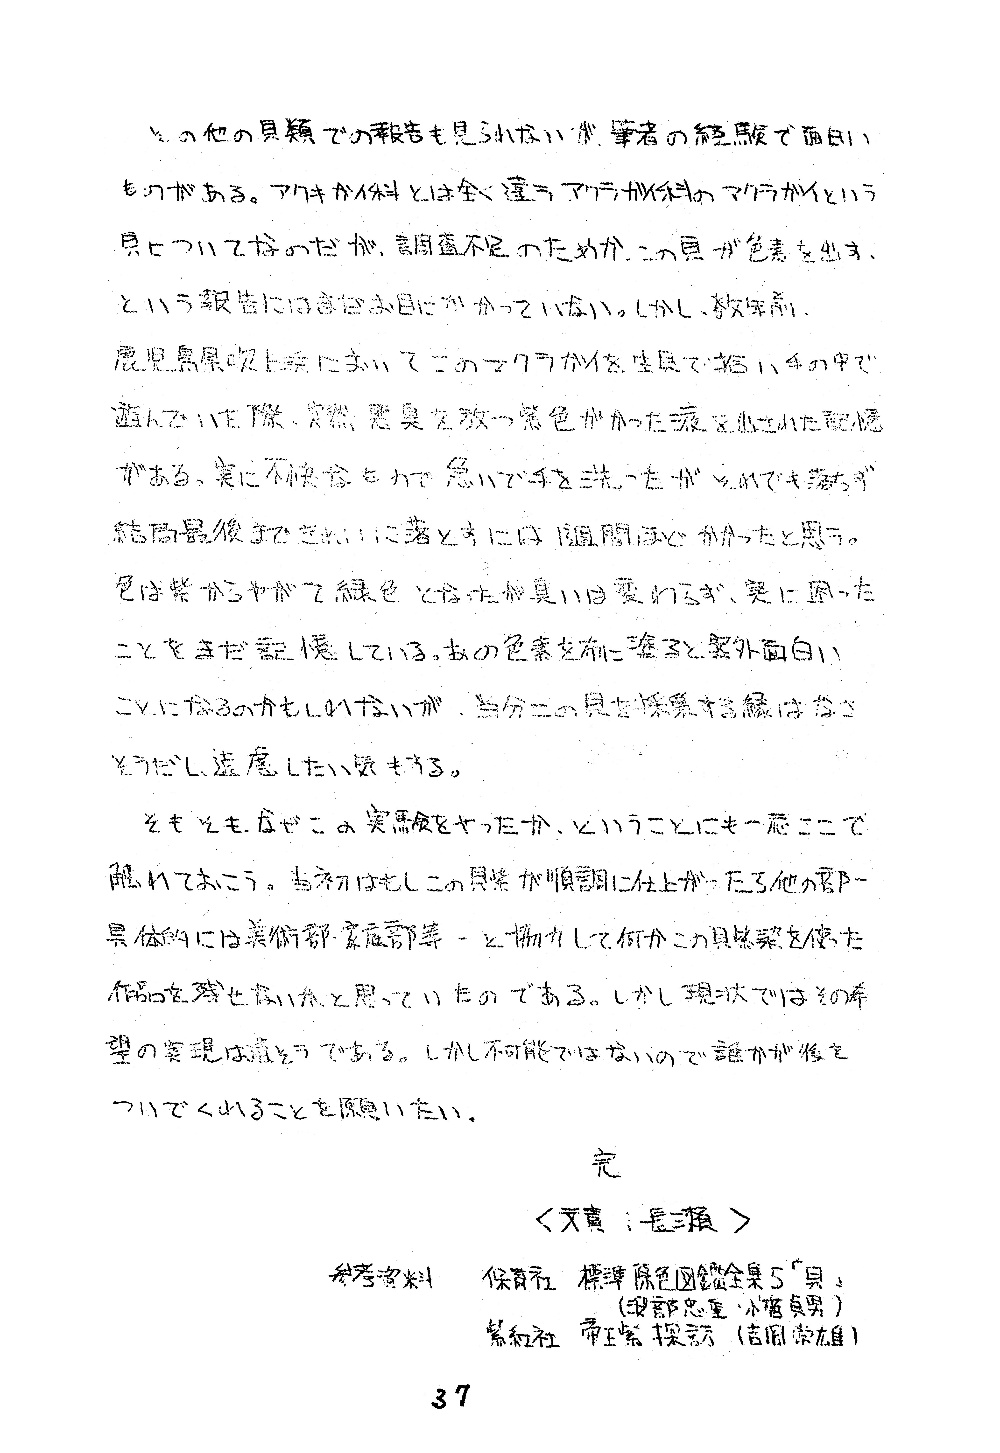 その他の貝類での報告も見られないが、筆者の経験で面白い
ものがある。アクキガイ科とは全く違うマクラガイ科のマクラガイという
貝についてなのだが、調査不足のためか、この貝が色素を出す、
という報告にはまだお目にかかっていない。しかし、数年前、
鹿児島県吹上浜においてこのマクラガイを生貝で拾い手の中で
遊んでいた際、突然、悪臭を放つ紫色がかった液を出された記憶
がある。実に不快なもので急いで手を洗ったがそれでも落ちず
結局最後まできれいに落とすには1週間ほどかかったと思う。
色は紫からやがて緑色となったが臭いは変わらず、実に困った
ことをまだ記憶している。あの色素を布に塗ると案外面白い
ことになるのかもしれないが、当分この貝を採集する縁はなさ
そうだし、遠慮したい気もする。
そもそも、なぜこの実験をやったか、ということにも一応ここで
触れておこう。当初はもしこの貝紫が順調に仕上がったら他の部-
具体的には美術部・家庭部等-と協力して何かこの貝紫染を使った
作品を残せないか、と思っていたのである。しかし現状ではその希
望の実現は遠そうである。しかし不可能ではないので誰かが後を
ついでくれることを願いたい。
完
〈文責:長瀬〉
参考資料 保育社 標準原色図鑑全集5「貝」
(波部忠重・小菅貞男)
紫紅社 帝王紫探訪 (吉岡常雄)
37